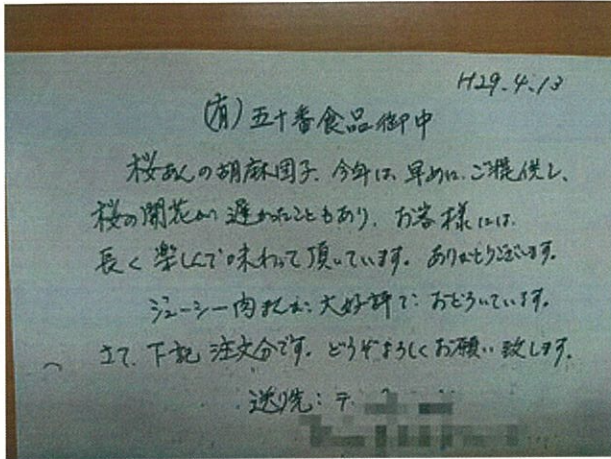 H29.4.13
(有)五十番食品御中
桜あんの胡麻団子、今年は、早めに、ご提供し、
桜の開花が遅かったこともあり、お客様には、
長く楽しんで味わって頂いています。ありがとうございます。
ジューシー肉まんが、大好評で、おどろいています。
さて、下記注文分です。どうぞよろしくお願い致します。
送り先:〒